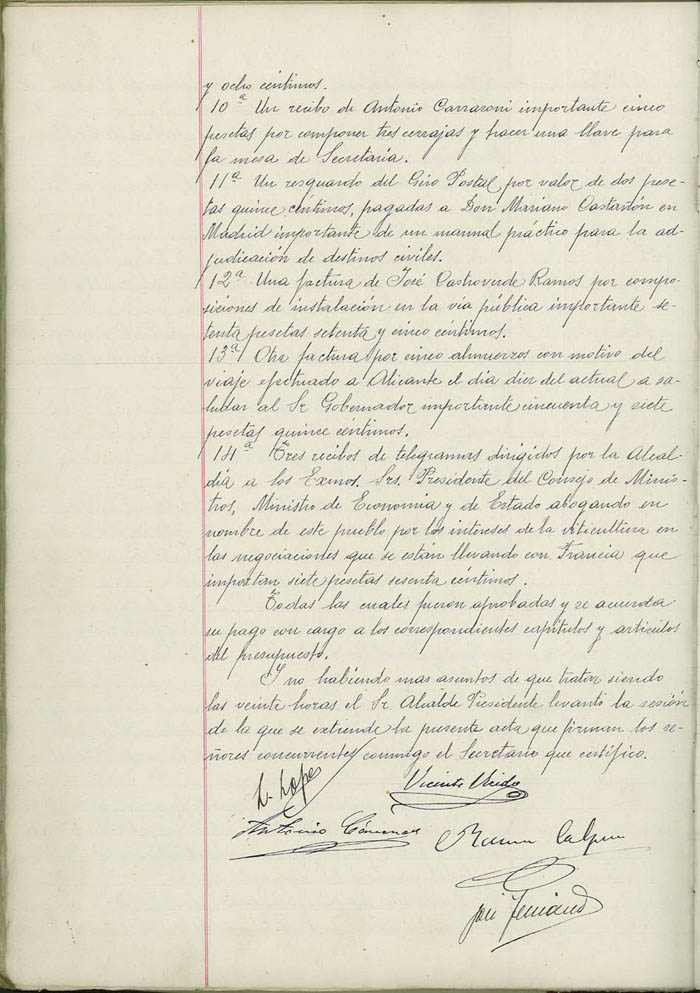 y ocho céntimos.
10ª Un recibo de Antonio Carraroni importante cinco
pesetas por componer tres cerrajas y hacer una llave para
la mesa de Secretaría.
11ª Un resguardo del Giro Postal por valor de dos pese-
tas quince céntimos, pagadas a Don Mariano Castañón en
Madrid importante de un manual práctico para la ad-
judicación de destinos civiles.
12ª Una factura de José Castroverde Ramos por compo-
siciones de instalación en la via pública importante se-
tenta pesetas setenta y cinco céntimos.
13ª Otra factura por cinco almuerzos con motivo del
viaje efectuado a Alicante el día diez del actual a sa-
ludar al Sr Gobernador importante cincuenta y siete
pesetas quince céntimos.
14ª Tres recibos de telegramas dirigidos por la Alcal-
día a los Exmos. Srs. Presidente del Consejo de Minis-
tros, Ministro de Economía y de Estado abogando en
nombre de este pueblo por los intereses de la viticultura en
las negociaciones que se están llevando con Francia que
importan siete pesetas sesenta céntimos.
Todas las cuales fueron aprobadas y se acuerda
su pago con cargo a los correspondientes capítulos y articulos
del presupuesto.
Y no habiendo mas asuntos de que tratar siendo
las veinte horas el Sr Alcalde Presidente levantó la sesión
de la que se extiende la presente acta que firman los se-
ñores concurrentes conmigo el Secretario que certifico.
L. Lopez
Vicente
Antonio
Ramon
José